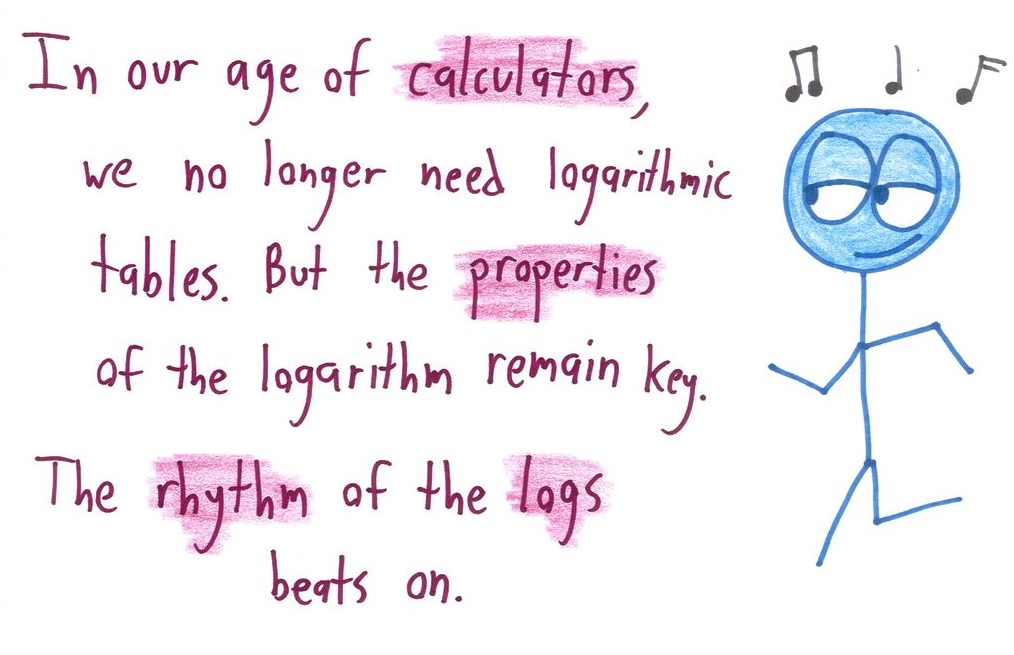 In our age of calculators,
we no longer need logarithmic
tables. But the properties
of the logarithm remain key.
The rhythm of the logs
beats on.